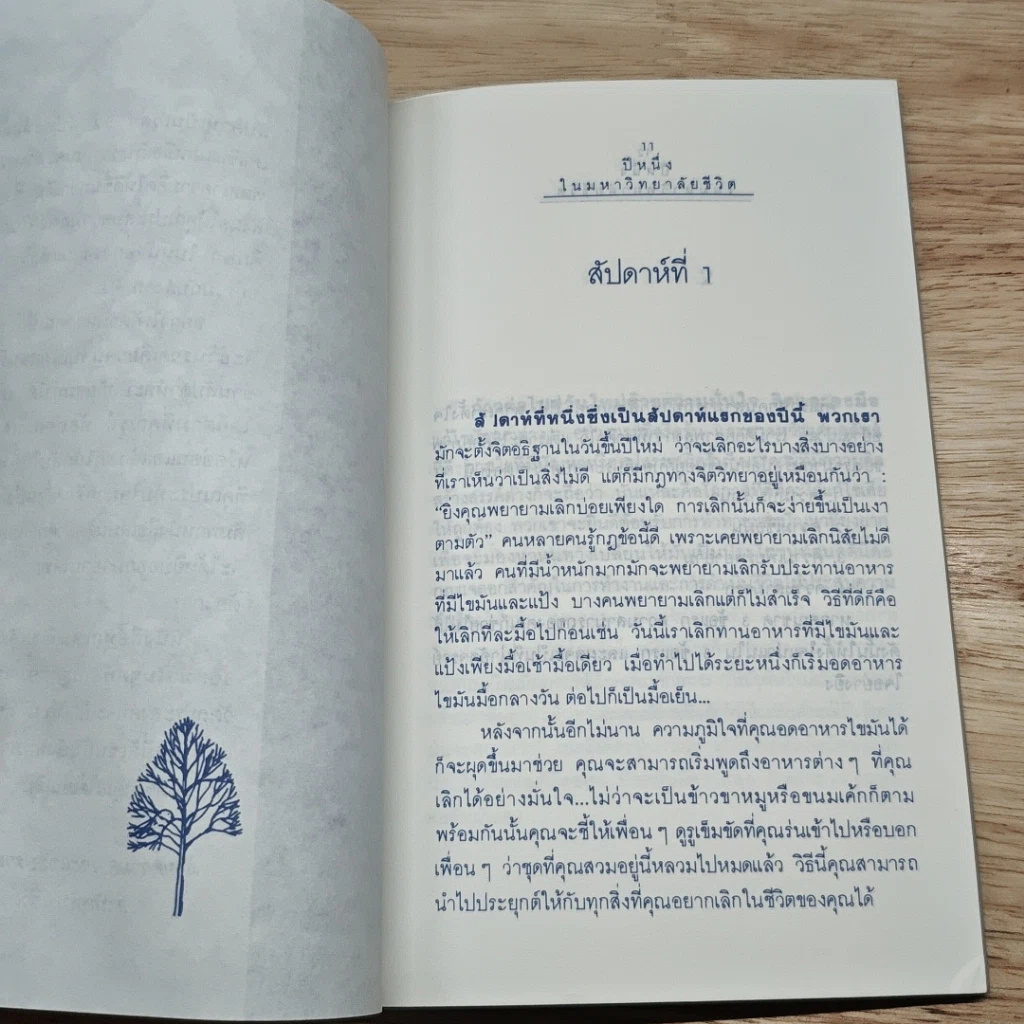 11
ปีหนึ่ง
ในมหาวิทยาลัยชีวิต
สัปดาห์ที่ 1
สัปดาห์ที่หนึ่งซึ่งเป็นสัปดาห์แรกของปีนี้ พวกเรา
มักจะตั้งจิตอธิฐานในวันขึ้นปีใหม่ ว่าจะเลิกอะไรบางสิ่งบางอย่าง
ที่เราเห็นว่าเป็นสิ่งไม่ดี แต่ก็มีกฎทางจิตวิทยาอยู่เหมือนกันว่า :
“ยิ่งคุณพยายามเลิกบ่อยเพียงใด การเลิกนั้นก็จะง่ายขึ้นเป็นเงา
ตามตัว” คนหลายคนรู้กฎข้อนี้ดี เพราะเคยพยายามเลิกนิสัยไม่ดี
มาแล้ว คนที่มีน้ำหนักมากมักจะพยายามเลิกรับประทานอาหาร
ที่มีไขมันและแป้ง บางคนพยายามเลิกแต่ก็ไม่สำเร็จ วิธีที่ดีก็คือ
ให้เลิกทีละมื้อไปก่อนเช่น วันนี้เราเลิกทานอาหารที่มีไขมันและ
แป้งเพียงมื้อเช้ามื้อเดียว เมื่อทำไปได้ระยะหนึ่งก็เริ่มอดอาหาร
ไขมันมื้อกลางวัน ต่อไปก็เป็นมื้อเย็น...
หลังจากนั้นอีกไม่นาน ความภูมิใจที่คุณอดอาหารไขมันได้
ก็จะผุดขึ้นมาช่วย คุณจะสามารถเริ่มพูดถึงอาหารต่าง ๆ ที่คุณ
เลิกได้อย่างมั่นใจ...ไม่ว่าจะเป็นข้าวขาหมูหรือขนมเค้กก็ตาม
พร้อมกันนั้นคุณจะชี้ให้เพื่อน ๆ ดูรูเข็มขัดที่คุณร่นเข้าไปหรือบอก
เพื่อน ๆ ว่าชุดที่คุณสวมอยู่นี้หลวมไปหมดแล้ว วิธีนี้คุณสามารถ
นำไปประยุกต์ให้กับทุกสิ่งที่คุณอยากเลิกในชีวิตของคุณได้